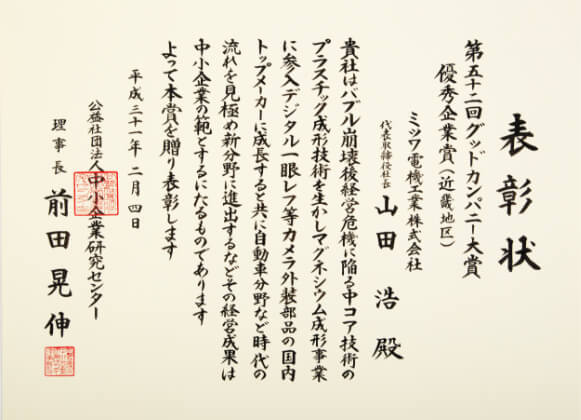 表彰状
第五十二回グッドカンパニー大賞
優秀企業賞(近畿地区)
ミツワ電機工業株式会社
代表取締役社長 山田 浩 殿
貴社はバブル崩壊後経営危機に陥る中コア技術の
プラスチック成形技術を生かしマグネシウム成形事業
に参入デジタル一眼レフ等カメラ外装部品の国内
トップメーカーに成長すると共に自動車分野など時代の
流れを見極め新分野に進出するなどその経営成果は
中小企業の範とするにたるものであります
よって本賞を贈り表彰します
平成三十一年二月四日
公益社団法人中小企業研究センター
理事長 前田晃伸